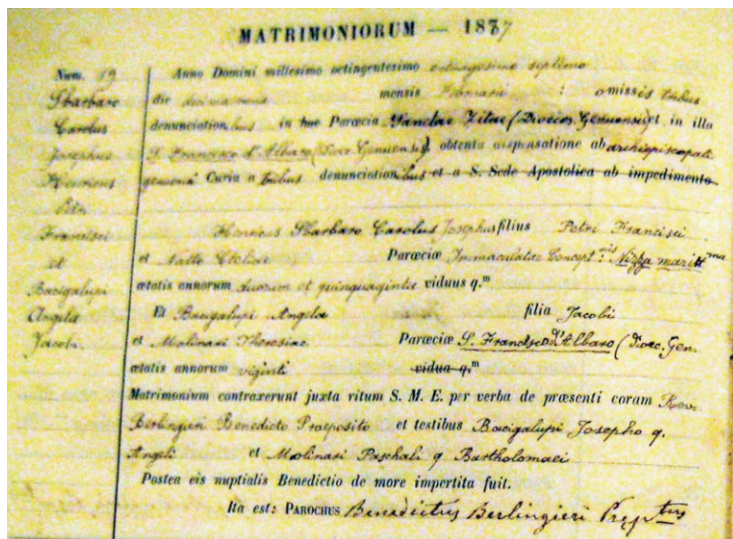 MATRIMONIORUM — 1887
Num. 19
Sbarbaro
Carolus
Josephus
Henricus
Petri
Francisci
et
Bacigalupi
Angela
Jacobi
Anno Domini millesimo octingentesimo octuagesimo septimo
die decimanona mensis Februarii : omissis tribus
denunciationibus in hac Parœcia Sanctae Zitae (Diœces. Genuensis) et in illa
S. Francisci d'Albaro (Diœc. Genuensis) obtenta dispensatione ab archiepiscopali
genuensi Curia a tribus denunciationibus et a S. Sede Apostolica ab impedimento
Henricus Sbarbaro Carolus Josephus filius Petri Francisci
et Natte Cleliae Parœciæ Immaculatae Concept.nis Nizza maritt.ma
ætatis annorum duorum et quinquaginta viduus q.m
Et Bacigalupi Angela filia Jacobi
et Molinari Theresiae Parœciæ S. Francisco d'Albaro (Diœc. Gen.
ætatis annorum viginti vidua q.m
Matrimonium contraxerunt juxta ritum S. M. E. per verba de præsenti coram Rev.
Berlingieri Benedicto Præposito et testibus Bacigalupi Josepho q.
Angeli et Molinari Paschali q Bartholomaei
Postea eis nuptialis Benedictio de more impertita fuit.
Ita est: PAROCHUS Benedictus Berlingieri Præp.tus